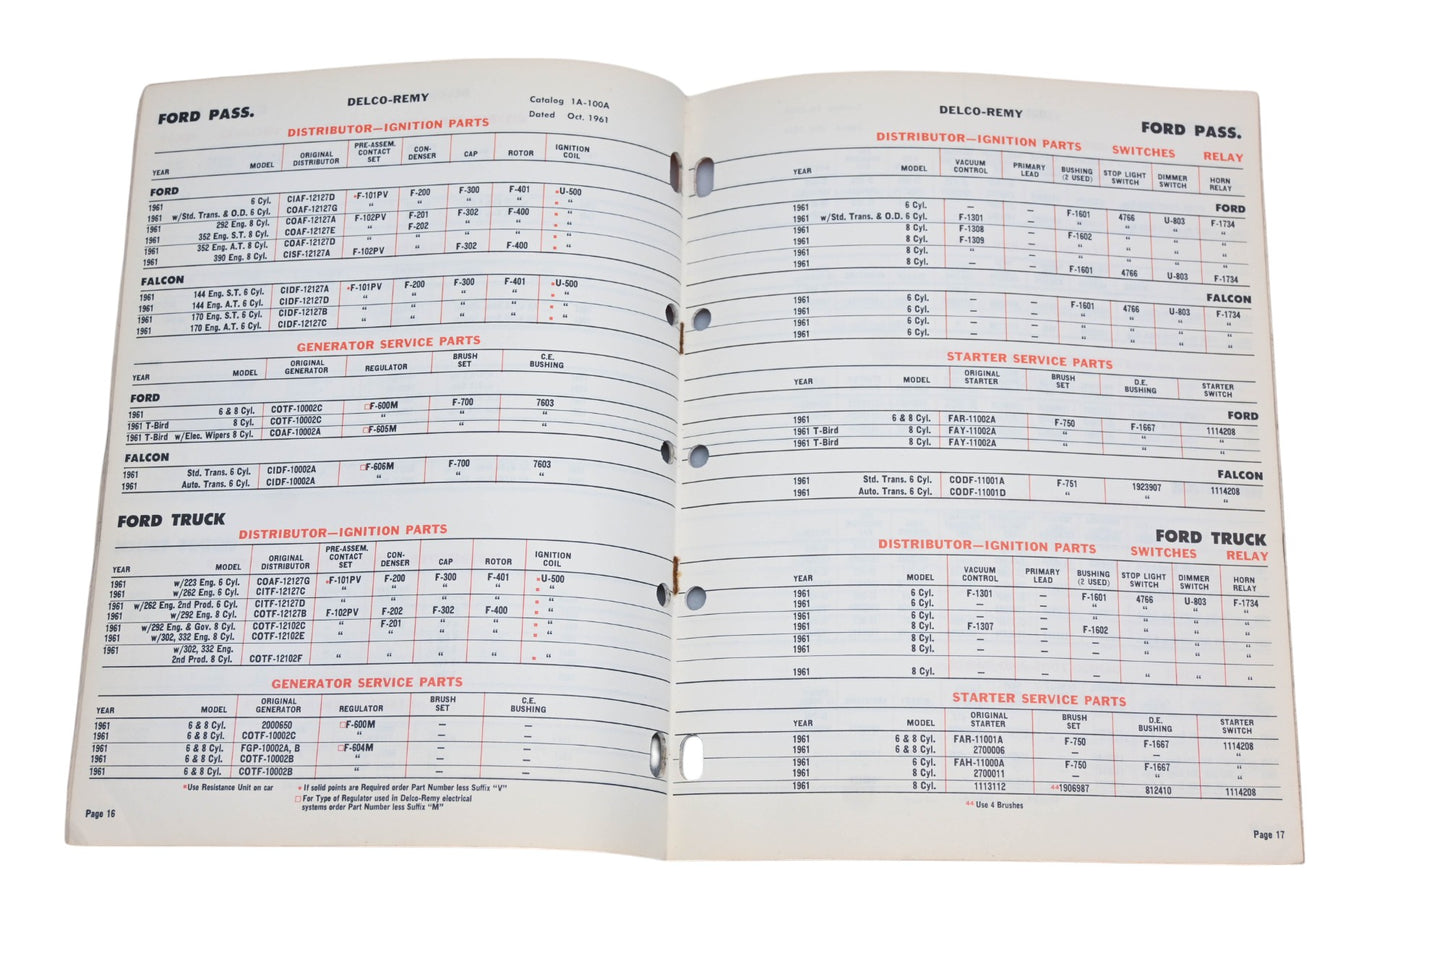 FORD PASS. DELCO-REMY Catalog 1A-100A
Dated Oct. 1961
DISTRIBUTOR—IGNITION PARTS
YEAR MODEL ORIGINAL DISTRIBUTOR PRE-ASSEM. CONTACT SET CON-DENSER CAP ROTOR IGNITION COIL
FORD
1961 6 Cyl. CIAF-12127D *F-101PV F-200 F-300 F-401 *U-500
1961 w/Std. Trans. & O.D. 6 Cyl. COAF-12127G “ “ “ “ * “
1961 292 Eng. 8 Cyl. COAF-12127A F-102PV F-201 F-302 F-400 * “
1961 352 Eng. S.T. 8 Cyl. COAF-12127E “ F-202 “ “ * “
1961 352 Eng. A.T. 8 Cyl. COAF-12127D “ “ “ “ * “
1961 390 Eng. 8 Cyl. CISF-12127A F-102PV “ F-302 F-400 * “
FALCON
1961 144 Eng. S.T. 6 Cyl. CIDF-12127A *F-101PV F-200 F-300 F-401 *U-500
1961 144 Eng. A.T. 6 Cyl. CIDF-12127D “ “ “ “ * “
1961 170 Eng. S.T. 6 Cyl. CIDF-12127B “ “ “ “ * “
1961 170 Eng. A.T. 6 Cyl. CIDF-12127C “ “ “ “ * “
GENERATOR SERVICE PARTS
YEAR MODEL ORIGINAL GENERATOR REGULATOR BRUSH SET C.E. BUSHING
FORD
1961 6 & 8 Cyl. COTF-10002C □F-600M F-700 7603
1961 T-Bird 8 Cyl. COTF-10002C “ “ “
1961 T-Bird w/Elec. Wipers 8 Cyl. COAF-10002A □F-605M “ “
FALCON
1961 Std. Trans. 6 Cyl. CIDF-10002A □F-606M F-700 7603
1961 Auto. Trans. 6 Cyl. CIDF-10002A “ “ “
FORD TRUCK
DISTRIBUTOR—IGNITION PARTS
YEAR MODEL ORIGINAL DISTRIBUTOR PRE-ASSEM. CONTACT SET CON-DENSER CAP ROTOR IGNITION COIL
1961 w/223 Eng. 6 Cyl. COAF-12127G *F-101PV F-200 F-300 F-401 *U-500
1961 w/262 Eng. 6 Cyl. CITF-12127C “ “ “ “ * “
1961 w/262 Eng. 2nd Prod. 6 Cyl. CITF-12127D “ “ “ “ * “
1961 w/292 Eng. 8 Cyl. COTF-12127B F-102PV F-202 F-302 F-400 * “
1961 w/292 Eng. & Gov. 8 Cyl. COTF-12102C “ F-201 “ “ * “
1961 w/302, 332 Eng. 8 Cyl. COTF-12102E “ “ “ “ * “
1961 w/302, 332 Eng.
2nd Prod. 8 Cyl. COTF-12102F “ “ “ “ * “
GENERATOR SERVICE PARTS
YEAR MODEL ORIGINAL GENERATOR REGULATOR BRUSH SET C.E. BUSHING
1961 6 & 8 Cyl. 2000650 □F-600M — —
1961 6 & 8 Cyl. COTF-10002C “ — —
1961 6 & 8 Cyl. FGP-10002A, B □F-604M — —
1961 6 & 8 Cyl. COTF-10002B “ — —
1961 6 & 8 Cyl. COTF-10002B “ — —
*Use Resistance Unit on car * If solid points are Required order Part Number less Suffix “V”
□ For Type of Regulator used in Delco-Remy electrical
systems order Part Number less Suffix “M”
Page 16
DELCO-REMY FORD PASS.
DISTRIBUTOR—IGNITION PARTS SWITCHES RELAY
YEAR MODEL VACUUM CONTROL PRIMARY LEAD BUSHING (2 USED) STOP LIGHT SWITCH DIMMER SWITCH HORN RELAY
FORD
1961 6 Cyl. — — F-1601 4766 U-803 F-1734
1961 w/Std. Trans. & O.D. 6 Cyl. F-1301 — “ “ “ “
1961 8 Cyl. F-1308 — F-1602 “ “ “
1961 8 Cyl. F-1309 — “ “ “ “
1961 8 Cyl. “ — “ “ “ “
1961 8 Cyl. — — F-1601 4766 U-803 F-1734
FALCON
1961 6 Cyl. — — F-1601 4766 U-803 F-1734
1961 6 Cyl. — — “ “ “ “
1961 6 Cyl. — — “ “ “ “
1961 6 Cyl. — — “ “ “ “
STARTER SERVICE PARTS
YEAR MODEL ORIGINAL STARTER BRUSH SET D.E. BUSHING STARTER SWITCH
FORD
1961 6 & 8 Cyl. FAR-11002A F-750 F-1667 1114208
1961 T-Bird 8 Cyl. FAY-11002A “ “ “
1961 T-Bird 8 Cyl. FAY-11002A “ “ “
FALCON
1961 Std. Trans. 6 Cyl. CODF-11001A F-751 1923907 1114208
1961 Auto. Trans. 6 Cyl. CODF-11001D “ “ “
FORD TRUCK
DISTRIBUTOR—IGNITION PARTS SWITCHES RELAY
YEAR MODEL VACUUM CONTROL PRIMARY LEAD BUSHING (2 USED) STOP LIGHT SWITCH DIMMER SWITCH HORN RELAY
1961 6 Cyl. F-1301 — F-1601 4766 U-803 F-1734
1961 6 Cyl. — — “ “ “ “
1961 6 Cyl. — — “ “ “ “
1961 8 Cyl. F-1307 — F-1602 “ “ “
1961 8 Cyl. — — — “ “ “
1961 8 Cyl. — — — “ “ “
1961 8 Cyl. — — — “ “ “
STARTER SERVICE PARTS
YEAR MODEL ORIGINAL STARTER BRUSH SET D.E. BUSHING STARTER SWITCH
1961 6 & 8 Cyl. FAR-11001A F-750 F-1667 1114208
1961 6 & 8 Cyl. 2700006 — — “
1961 8 Cyl. FAH-11000A F-750 F-1667 “
1961 8 Cyl. 2700011 — “ “
1961 8 Cyl. 1113112 **1906987 812410 1114208
** Use 4 Brushes
Page 17